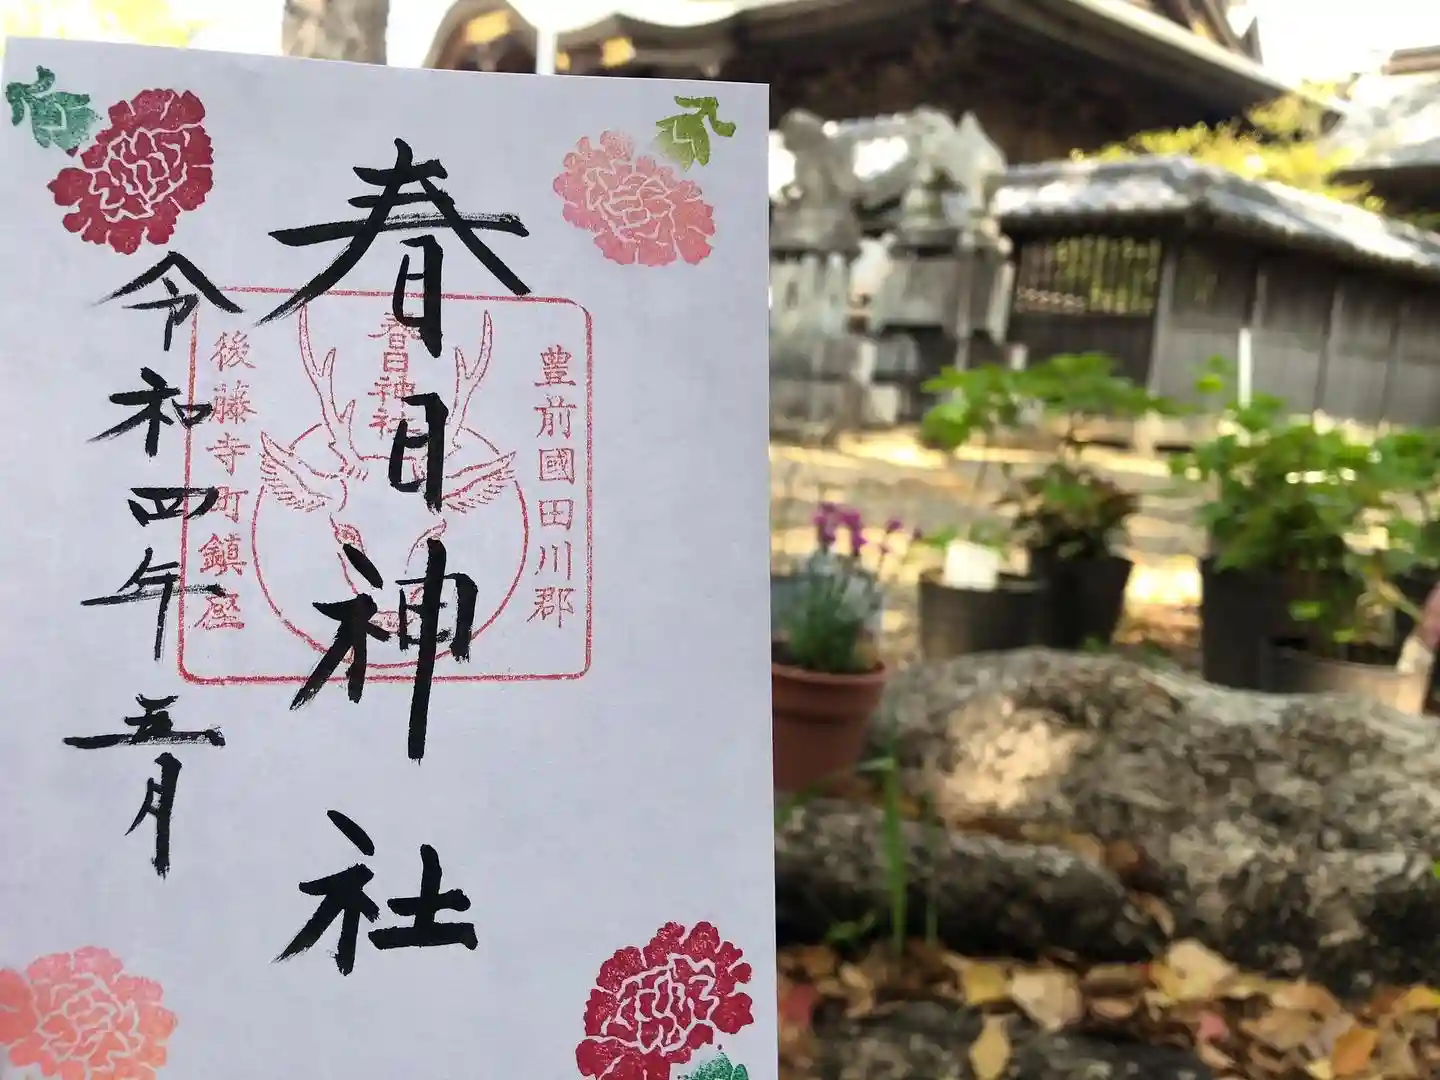 春日神社
豊前國田川郡
春日神社
後藤寺町鎮座
令和四年五月